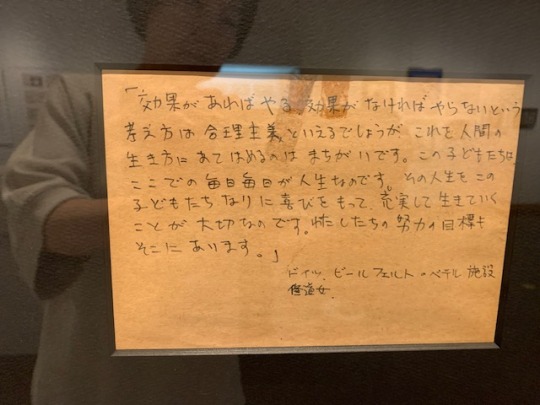 「効果があればやる 効果がなければやらないという
考え方は 合理主義といえるでしょうが、これを人間の
生き方にあてはめるのは まちがいです。この子どもたちは
ここでの毎日毎日が人生なのです。その人生をこの
子どもたちなりに喜びをもって、充実して生きていく
ことが 大切なのです。わたしたちの努力の目標も
そこにあります。」
ドイツ、ビールフェルト・ベテル施設
修道女